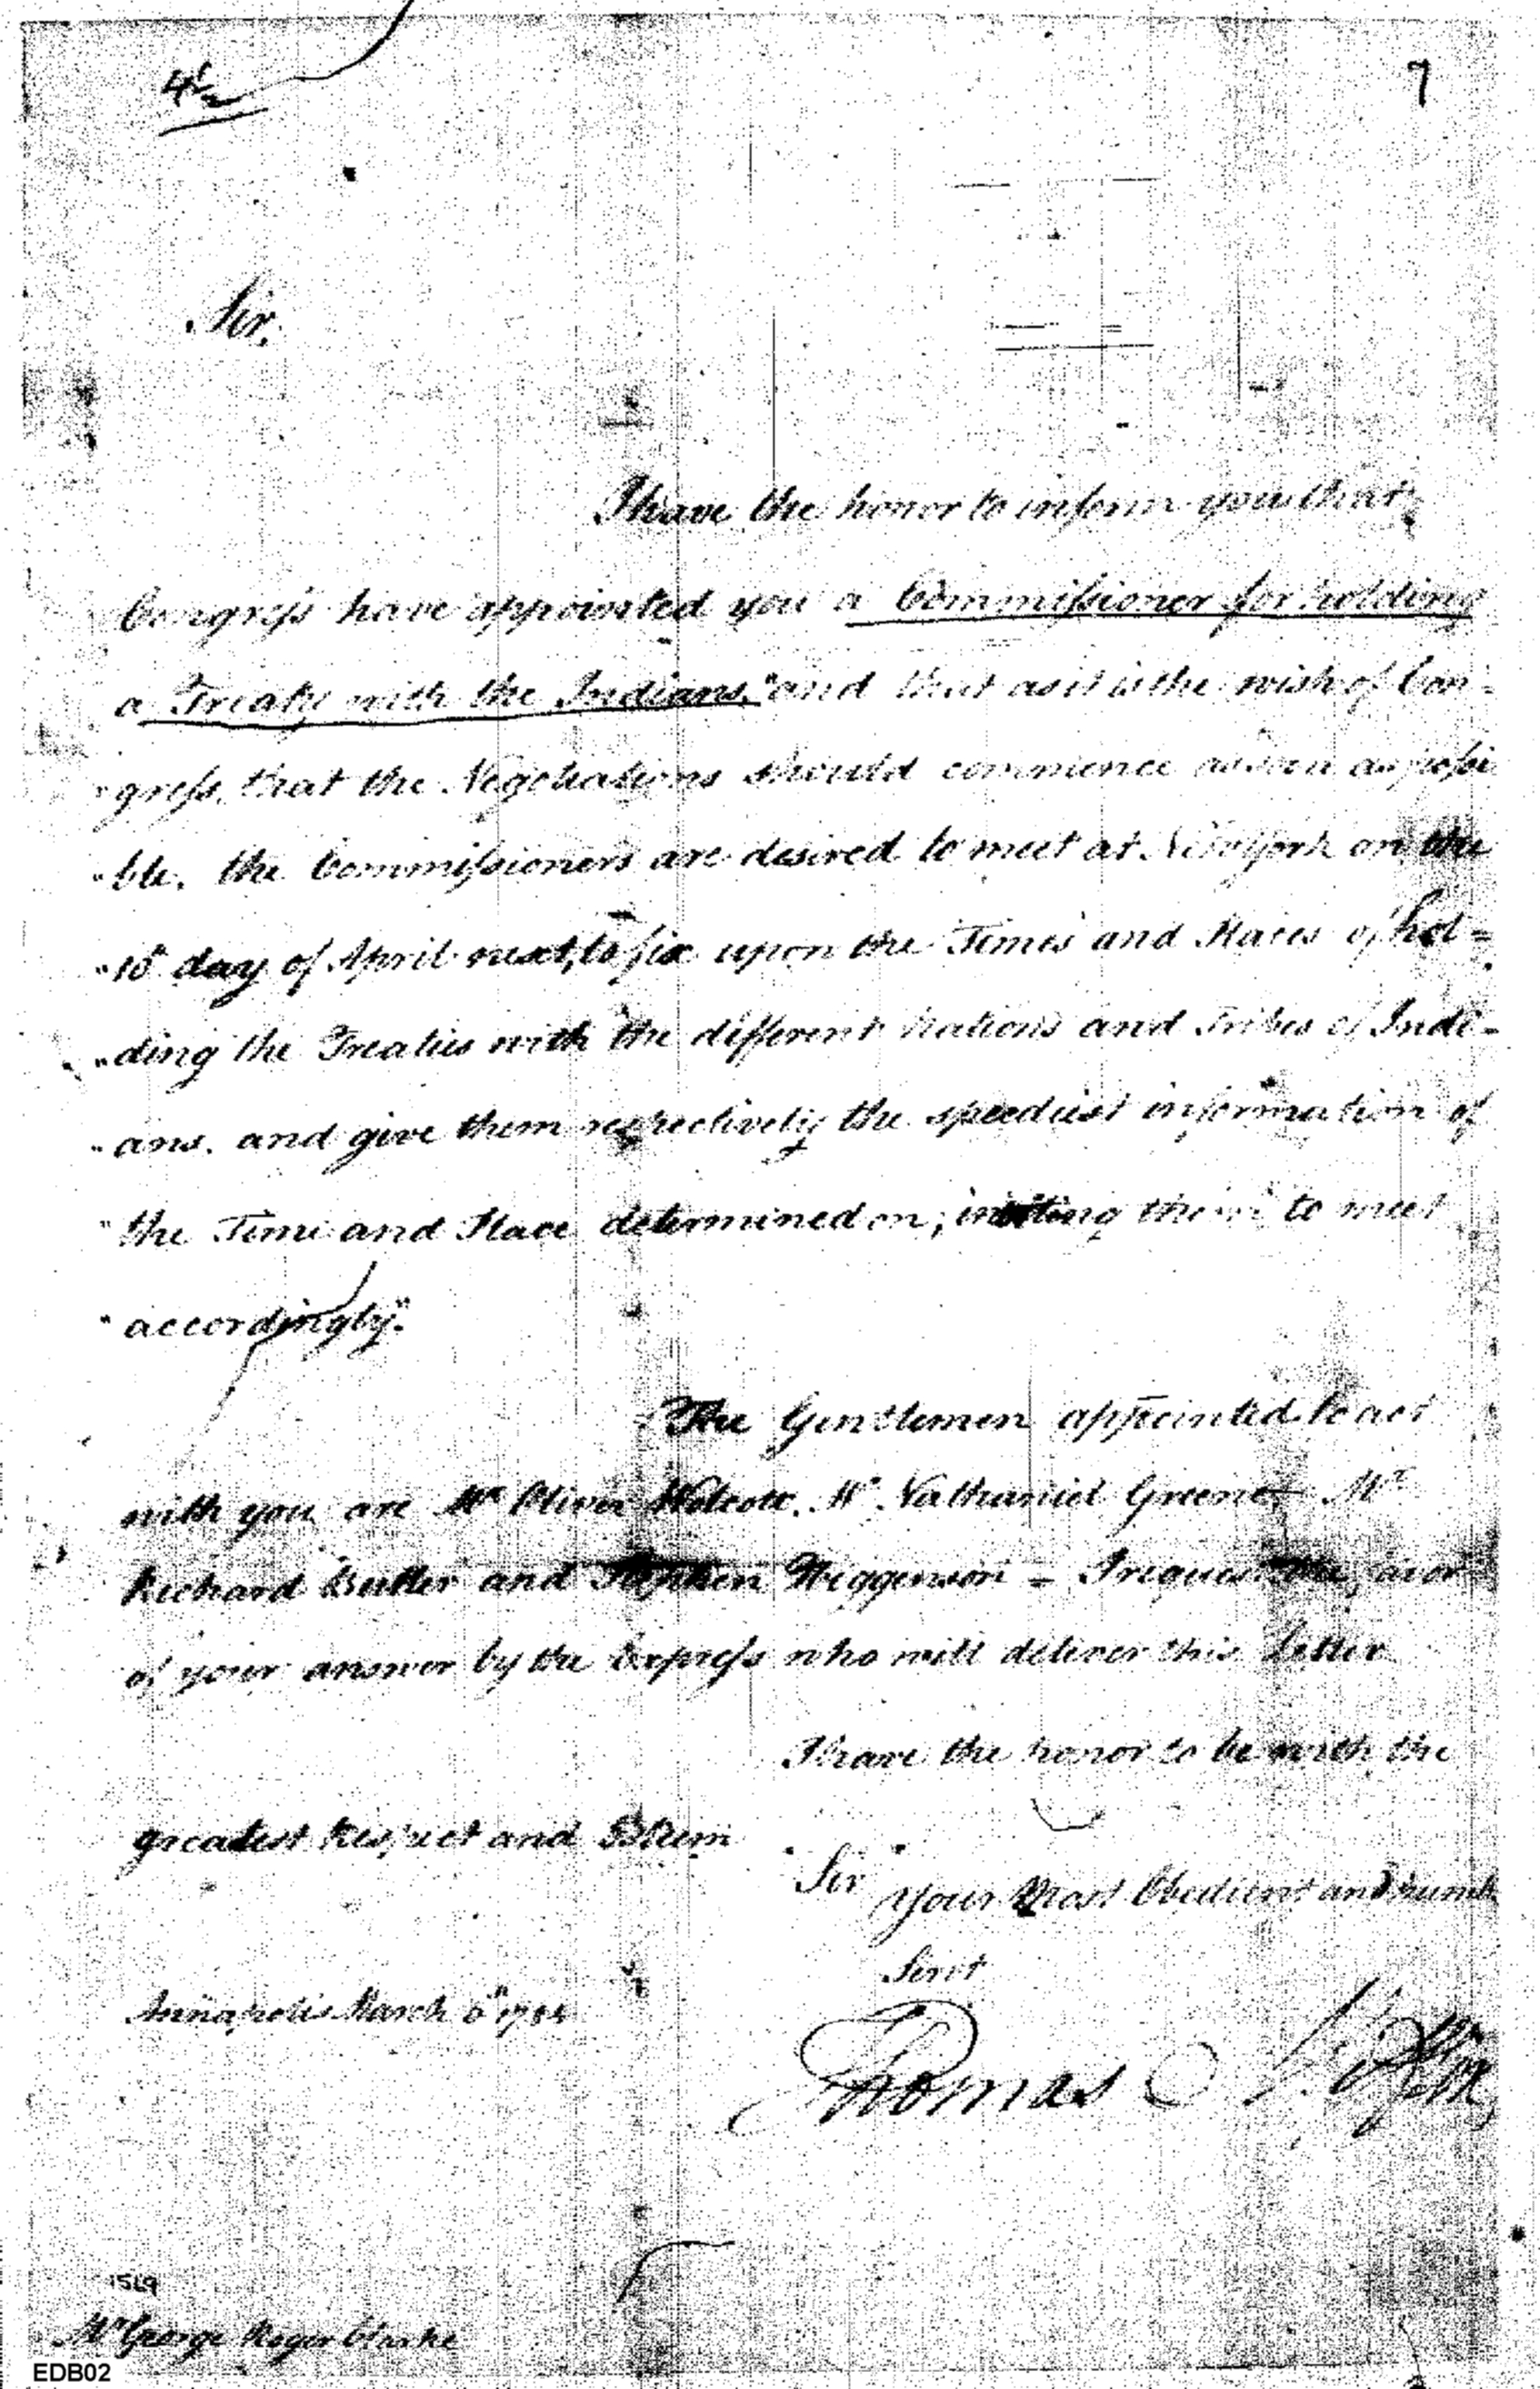 4½
7
Sir.
I have the honor to inform you that
Congress have appointed you a Commissioner for holding
a Treaty with the Indians, "and that as it is the wish of Con-
"gress, that the Negotiations should commence as soon as possi
"ble, the Commissioners are desired to meet at New York on the
"10th day of April next, to fix upon the Times and Places of hol=
"ding the Treaties with the different Nations and Tribes of Indi-
"ans, and give them respectively the speediest information of
"the Time and Place determined on, inviting them to meet
"accordingly."
The Gentlemen appointed to act
with you are Mr Oliver Wolcott, Mr Nathaniel Greene, Mr
Richard Butler and Stephen Higgenson = I request the favor
of your answer by the Express who will deliver this Letter
I have the honor to be with the
greatest Respect and Esteem
Sir
Your Most Obedient and humb
Servt
Annapolis March 6th 1784
Thomas Mifflin
1569
Mr George Roger Clarke
EDB02